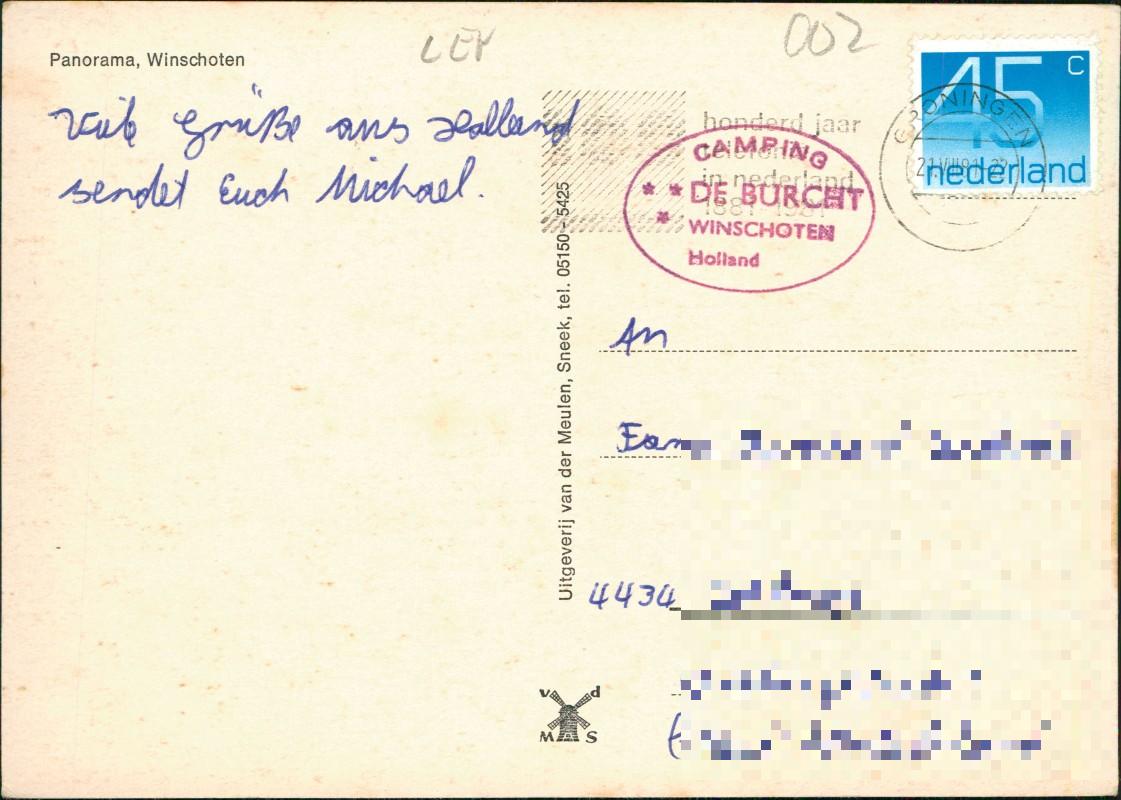 Panorama, Winschoten
LEY
002
Viele Grüße aus Holland
sendet Euch Michael.
Uitgeverij van der Meulen, Sneek, tel. 05150 - 5425
v d
M S
honderd jaar
telefoon
in nederland
1881-1981
CAMPING
*** DE BURCHT
WINSCHOTEN
Holland
45 c
nederland
GRONINGEN
21.VIII.81
An
Fam
4434